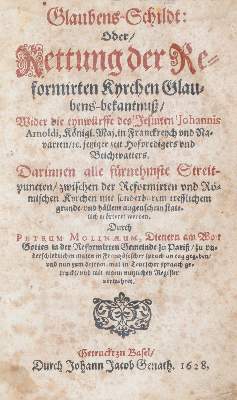 Glaubens-Schildt:
Oder/
Rettung der Re-
formirten Kyrchen Glau-
bens-bekantniß/
Wider die eynwürffe des Jesuiten Johannis
Arnoldi, Königl. Maj. in Franckreych und Na-
varren/ ꝛc. jetziger zeit Hofpredigers und
Beichtvatters.
Darinnen alle fürnehmste Streit-
puncten/ zwischen der Reformirten und Rö-
mischen Kyrchen mit sonderbarem trefflichem
grunde/ und hällem augenschein statt-
lich erörtert werden.
Durch
PETRUM MOLINÆUM, Dienern am Wort
Gottes in der Reformirten Gemeinde zu Pariß/ zu un-
derschiedlichen malen in Frantzösischer sprach an tag gegeben/
und nun zum ersten mal in Teutscher sprach ge-
truckt/ und mit einem nutzlichen Register
vermehret.
Getruckt zu Basel/
Durch Johann Jacob Genath. 1628.